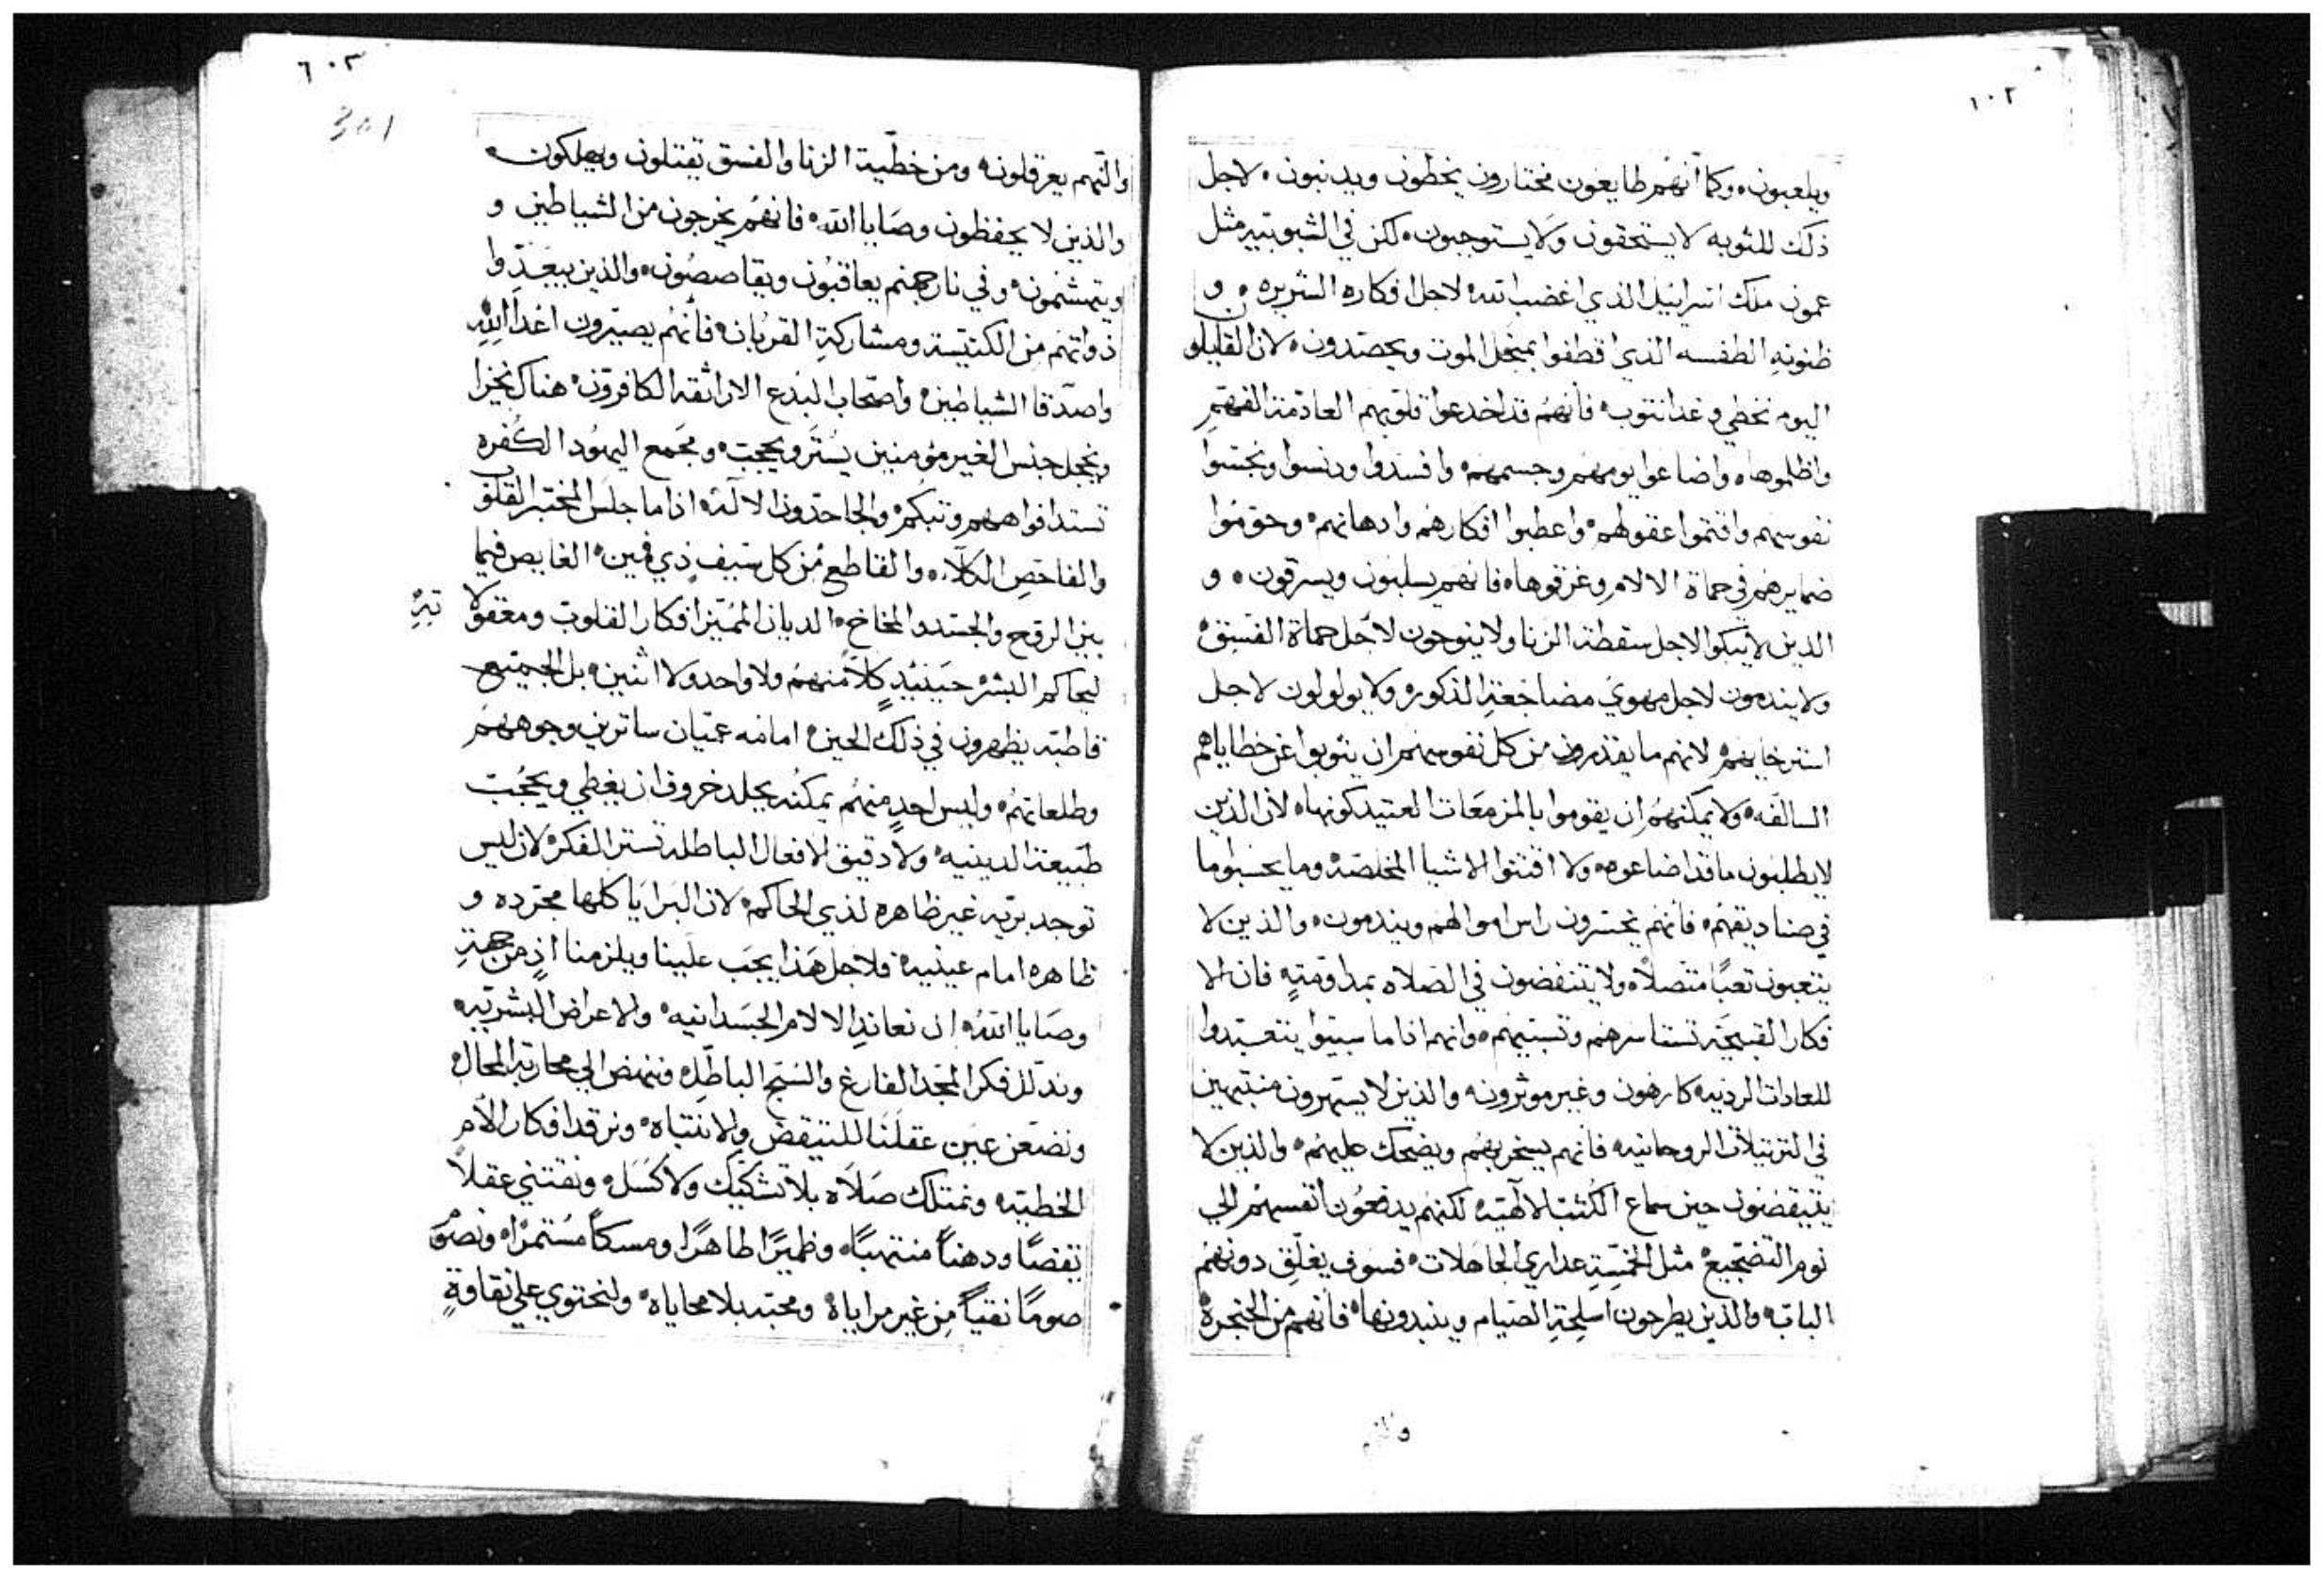 ٦٠٢
ويلعبون. وكما انهم طايعون مختارون يخطون ويذنبون. لاجل
ذلك للثوبه لا يستحقون ولا يستوجبون. لكن في مثل
عمون ملك اسراييل الذي اغضب الله لاجل افكاره الشريره. و
ظنونه الطفسه الذي قطفوا بمنجل الموت ويحصدون. لان القايلو
اليوم نخطي وغدا نتوب. فانهم قد اخدعوا قلوبهم العادمة الفهم
واظلموها. واضاعوا يومهم وجسمهم. وافسدوا ودنسوا ونجسوا
نفوسهم واقتموا عقولهم. واعطبوا افكارهم وادهانهم.
ضمايرهم في حماة الالام وغرقوها. فانهم يسلبون ويسرقون. و
الدين لا يبكوا لاجل سقطة الزنا ولا ينوحون لاجل حماة الفسق.
ولا يندمون لاجل مهوي مضاجعة الذكور. ولا يولولون لاجل
استرخايهم. لانهم ما يقدرون من كل نفوسهم ان يتوبوا عن خطاياهم
السالفه. ولا يمكنهم ان يقوموا بالمزمعات العتيد كونها. لان الذين
لا يطلبون ما قد اضاعوه. ولا اقتنوا الاشيا المخلصه وما يحسبوا ما
في صناديقهم. فانهم يخسرون راس اموالهم ويندمون. والذين لا
يتعبون تعبًا متصلًا. ولا يتنفضون في الصلاه بمداومةٍ فان الا
فكار القبيحة تستاسرهم وتسبيهم. وانهم اذا ما سبيوا يتعبدوا
للعادات الرديه كارهون وغير موثرون. والذين لا يسهرون منتبهين
في الترتيلات الروحانيه فانهم يسخر بهم ويضحك عليهم. والذين لا
يتيقضون حين سماع الكتب الالهيه. لكنهم يدفعون انفسهم الي
نوم التضجيع. مثل الخمسة عداري الجاهلات. فسوف يغلق دونهم
الباب. والذين يطرحون اسلحة الصيام وينبدونها. فانهم من الحنجرة
والنهم
٦٠٣
301
والنهم يعرقلون. ومن خطية الزنا والفسق يقتلون ويهلكون.
والذين لا يحفظون وصايا الله. فانهم يخرجون من الشياطين و
ويتهشمون. وفي نار جهنم يعاقبون ويقاصصون. والذين يبعدوا
ذواتهم من الكنيسة ومشاركة القربان. فانهم يصيرون اعدا الله
واصدقا الشياطين. واصحاب البدع الاراتقه الكافرون. هناك نخزا
ويخجل جنس الغير مومنين يستر ويحجب. ومجمع اليهود الكفره
تستد افواههم وتبكم. والجاحدون الاله. اذا ما جلس المختبر القلوب
والفاحص الكلا. والقاطع من كل سيف ذي فمين. الغايص فيما
بين الروح والجسد والمخاخ. الديان المميز افكار القلوب ومعقولا
تبر
ليحاكم البشر حينيدٍ كلًا منهم ولا واحد ولا اثنين. بل الجميع
قاطبة يظهرون في ذلك الحين. امامه عميان ساترين وجوههم
وطلعاتهم. وليس احدٍ منهم يمكنه بجلد خروف ان يغطي ويحجب
طبيعة الدينيه. ولا دقيق الافعال الباطلة تستر الفكر. لان ليس
توجد بريه غير ظاهره لذي الحاكم. لان البرايا كلها مجرده و
ظاهره امام عينيه. فلاجل هذا يجب علينا ويلزمنا اذٍ من جهة
وصايا الله. ان نعاند الالام الجسدانيه. والاعراض البشريه
وندلل فكر المجد الفارغ والسبح الباطل. وننهض الي محاربة المحال
ونضع عين عقلنا للتيقض والانتباه. ونرقد افكار الالام
الخطيه. ونمتلك صلاه بلا تشكيك ولا كسل. ونقتني عقلًا
يقضًا ودهنًا منتهبًا. وظميرًا طاهرًا ومسكًا مستمرًا. ونصوم
صومًا نقيًا من غير مراياه. ومحبة بلا محاياه. ولنحتوي علي نقاوةٍ